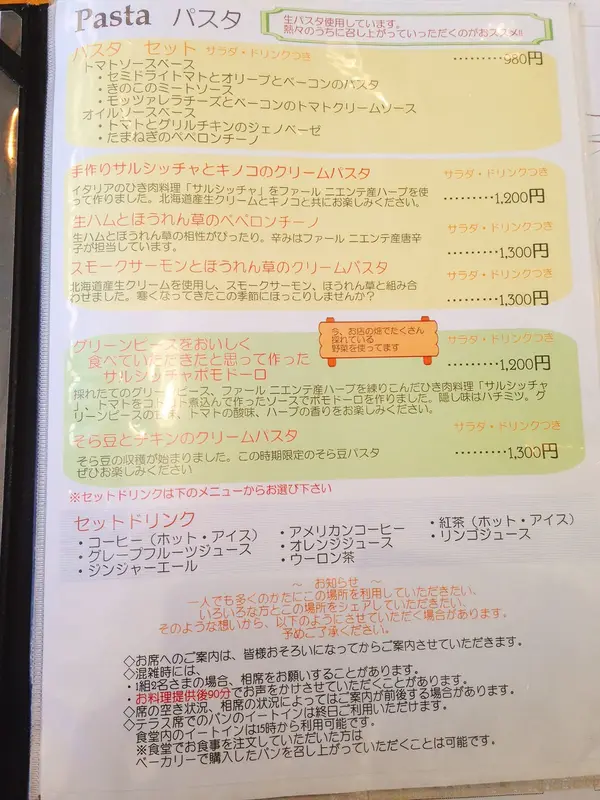 Pasta パスタ
生パスタ使用しています。
熱々のうちに召し上がっていっただくのがおススメ!!
パスタ セット サラダ・ドリンクつき ………980円
トマトソースベース
・セミドライトマトとオリーブとベーコンのパスタ
・きのこのミートソース
・モッツァレラチーズとベーコンのトマトクリームソース
オイルソースベース
・トマトとグリルチキンのジェノベーゼ
・たまねぎのペペロンチーノ
手作りサルシッチャとキノコのクリームパスタ サラダ・ドリンクつき
イタリアのひき肉料理「サルシッチャ」をファール ニエンテ産ハーブを使
って作りました。北海道産生クリームとキノコと共にお楽しみください。 ………1,200円
生ハムとほうれん草のペペロンチーノ サラダ・ドリンクつき
生ハムとほうれん草の相性がぴったり。辛みはファール ニエンテ産唐辛
子が担当しています。 ………1,300円
スモークサーモンとほうれん草のクリームパスタ サラダ・ドリンクつき
北海道産生クリームを使用し、スモークサーモン、ほうれん草と組み合
わせました。寒くなってきたこの季節にほっこりしませんか? ………1,300円
今、お店の畑でたくさん
採れている
野菜を使ってます
グリーンピースをおいしく サラダ・ドリンクつき
食べていただきたと思って作った
サルシッチャポモドーロ ………1,200円
採れたてのグリーンピース、ファール ニエンテ産ハーブを練りこんだひき肉料理「サルシッチャ
」、トマトをコトコト煮込んで作ったソースでポモドーロを作りました。隠し味はハチミツ。グ
リーンピースの甘さ、トマトの酸味、ハーブの香りをお楽しみください。
そら豆とチキンのクリームパスタ サラダ・ドリンクつき
そら豆の収穫が始まりました。この時期限定のそら豆パスタ
ぜひお楽しみください ………1,300円
※セットドリンクは下のメニューからお選び下さい
セットドリンク
・コーヒー(ホット・アイス) ・アメリカンコーヒー ・紅茶(ホット・アイス)
・グレープフルーツジュース ・オレンジジュース ・リンゴジュース
・ジンジャーエール ・ウーロン茶
～ お知らせ ～
一人でも多くのかたにこの場所を利用していただきたい、
いろいろな方とこの場所をシェアしていただきたい、
そのような想いから、以下のようにさせていただく場合があります。
予めご了承ください。
◇お席へのご案内は、皆様おそろいになってからご案内させていただきます。
◇混雑時には、
・1組2名さまの場合、相席をお願いすることがあります。
・お料理提供後90分でお声をかけさせていただくことがあります。
◇席の空き状況、相席の状況によってはご案内が前後する場合があります。
◇テラス席でのパンのイートインは終日ご利用いただけます。
食堂内のイートインは15時から利用可能です。
※食堂でお食事を注文していただいた方は
ベーカリーで購入したパンを召し上がっていただくことは可能です。